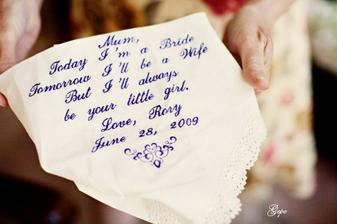 Mum,
Today I'm a Bride
Tomorrow I'll be a Wife
But I'll always
be your little girl.
Love, Rory
June 28, 2009